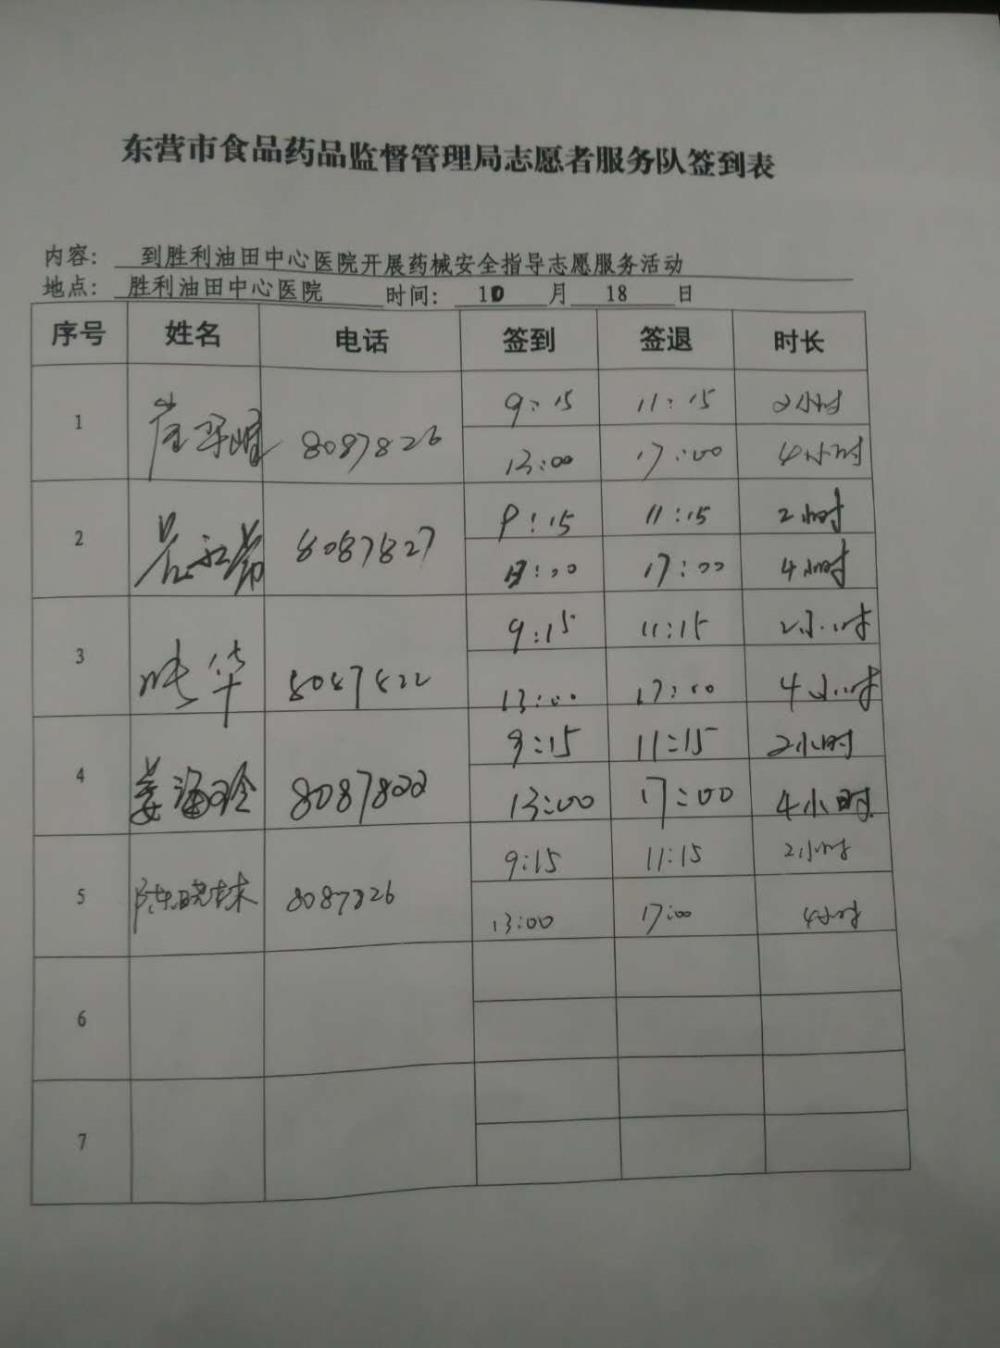 东营市食品药品监督管理局志愿者服务队签到表
内容: 到胜利油田中心医院开展药械安全指导志愿服务活动
地点: 胜利油田中心医院 时间: 10 月 18 日
序号 姓名 电话 签到 签退 时长
1 8087826 9:15 11:15 2小时
13:00 17:00 4小时
2 8087827 9:15 11:15 2小时
13:00 17:00 4小时
3 华 8087822 9:15 11:15 2小时
13:00 17:00 4小时
4 姜海玲 8087822 9:15 11:15 2小时
13:00 17:00 4小时
5 陈晓林 8087826 9:15 11:15 2小时
13:00 17:00 4小时
6
7